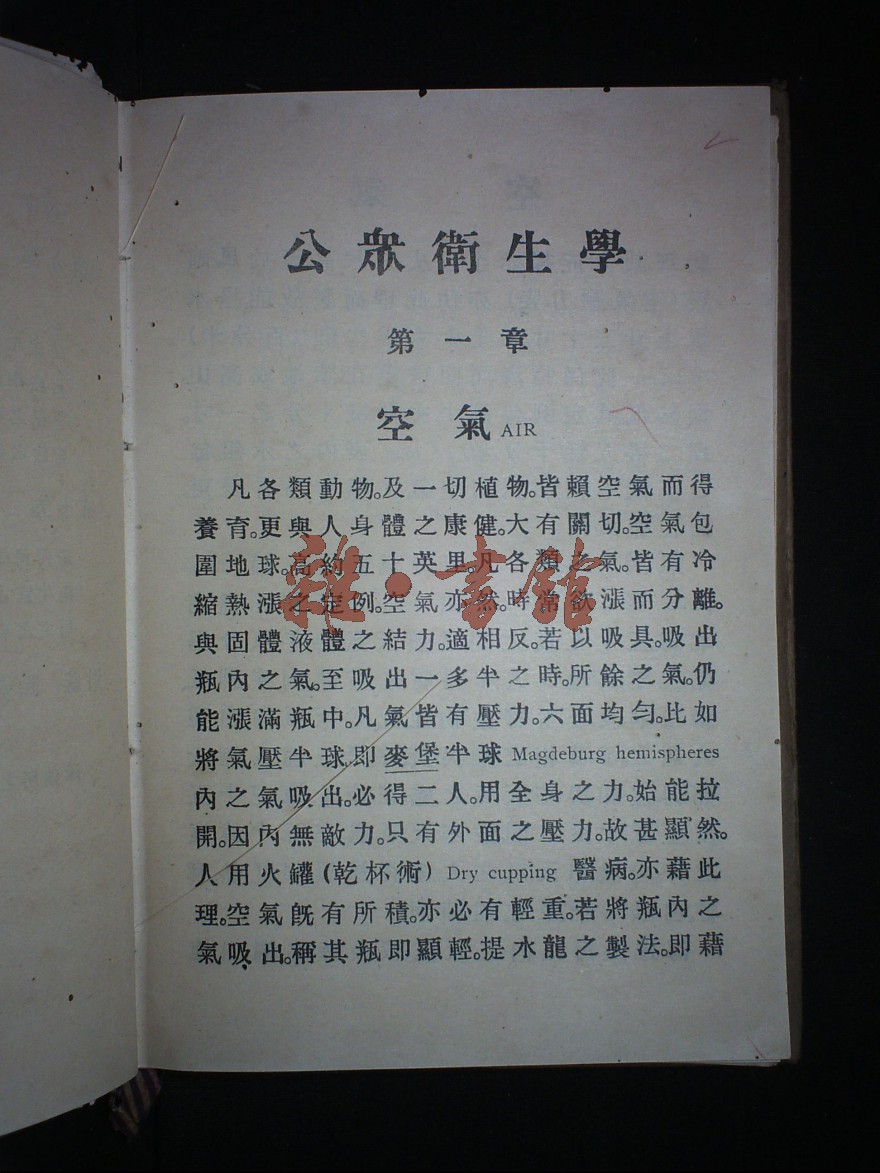 公眾衛生學
第一章
空氣 AIR
凡各類動物。及一切植物。皆賴空氣而得
養育。更與人身體之康健。大有關切。空氣包
圍地球。高約五十英里。凡各類之氣。皆有冷
縮熱漲之定例。空氣亦然。時常欲漲而分離。
與固體液體之結力。適相反。若以吸具。吸出
瓶內之氣。至吸出一多半之時。所餘之氣。仍
能漲滿瓶中。凡氣皆有壓力。六面均勻。比如
將氣壓半球。即麥堡半球 Magdeburg hemispheres
內之氣吸出。必得二人。用全身之力。始能拉
開。因內無敵力。只有外面之壓力。故甚顯然。
人用火罐(乾杯術) Dry cupping 醫病。亦藉此
理。空氣既有所積。亦必有輕重。若將瓶內之
氣吸出。稱其瓶即顯輕。提水龍之製法。即藉
雜·書館